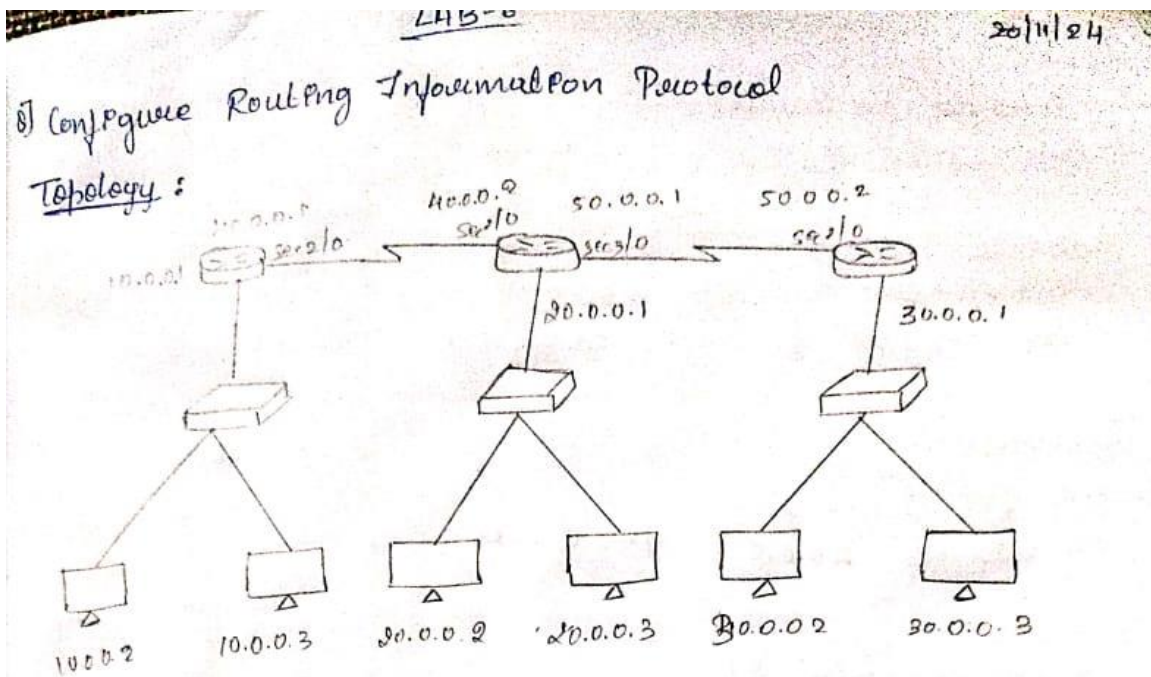 20/11/24
8] Configure Routing Information Protocol
Topology :
40.0.0.2 50.0.0.1 50.0 0.2
10.0.0.1 se2/0 se2/0 se3/0 se2/0
20.0.0.1 30.0.0.1
10 0 0.2 10.0.0.3 20.0.0.2 20.0.0.3 30.0.02 30.0.0.3